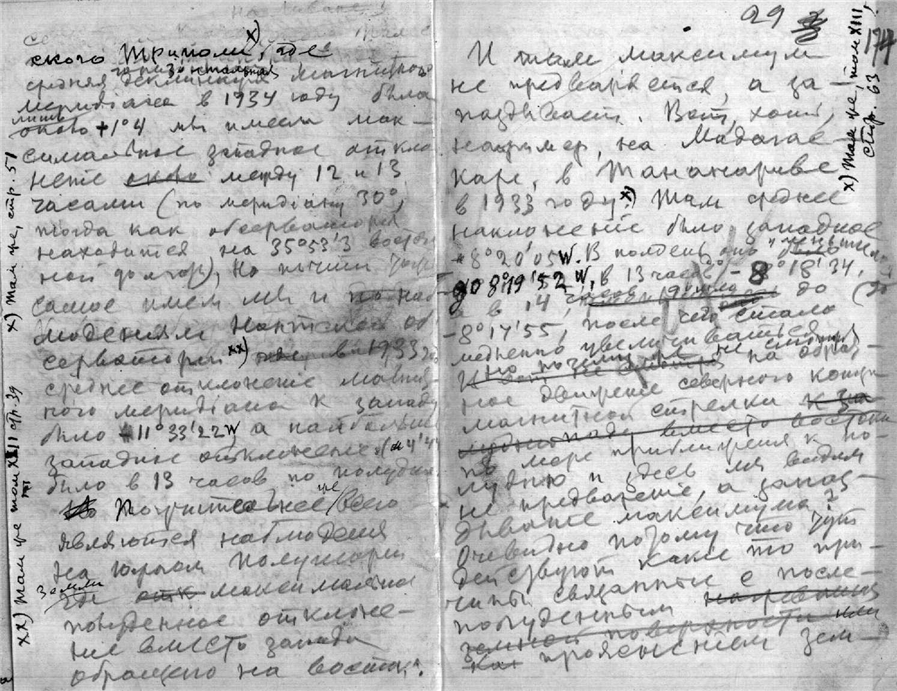 ского Триполи x), где
средняя горизонтальная магнитного
меридиана в 1934 году была
лишь около +1°4 мы имеем мак-
симальное западное откло
нение около между 12 и 13
часами (по меридиану 30°,
тогда как обсерватория
находится на 35°53'3 восточ
ной долготы), но почти
самое имеем мы и по наб
людениям Нантской об
серватории xx) в 1933
среднее отклонение магнит-
ного меридиана к западу
было 11°33'22 W, а наибольшее
западное отклонение
было в 13 часов по полудни
Поучительнее всего
являются наблюдения
на южном полушарии
Земли
где максимальное
полуденное отклоне-
ние вместо запада
обращено на восток.
x) Там же, стр. 51
xx) Там же том XIII стр. 39
29
174
И там максимум
не предваряется, а за
паздывает. Вот, хотя,
например, на Мадагас
каре, в Тананариве
в 1933 году x) Там среднее
наклонение было западное
8°20'05 W. В полдень оно
до 8°19'52 W, в 13 часов - 8°18'34,
а в 14 часов до
-8°14'55, после чего стало
медленно увеличиваться
И но почему не смотря на обрат-
ное движение северного конца
магнитной стрелки к за
вместо востока
по мере приближения к по-
лудню и здесь мы видим
не предварение, а запаз-
дывание максимума?
Очевидно потому что тут
действуют какие то при-
чины связанные с после-
полуденным нагреванием
земной поверхности или
как прояснением зем-
x) Там же, том XIII,
стр. 63